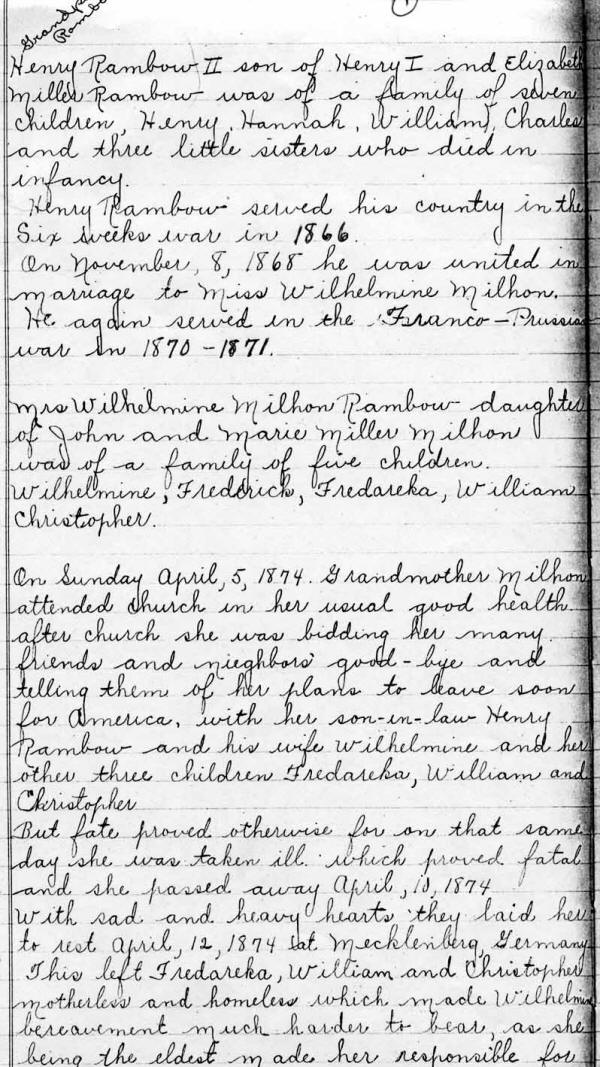 Grandpa
Rambo
1
Henry Rambow II son of Henry I and Elizabeth
Miller Rambow was of a family of seven
children, Henry, Hannah, William, Charles
and three little sisters who died in
infancy.
Henry Rambow served his country in the
Six weeks war in 1866.
On November, 8, 1868 he was united in
marriage to Miss Wilhelmine Milhon.
He again served in the Franco-Prussia
war in 1870-1871.
Mrs Wilhelmine Milhon Rambow daughter
of John and Marie Miller Milhon
was of a family of five children.
Wilhelmine, Frederick, Fredareka, William
Christopher.
On Sunday April, 5, 1874. Grandmother Milhon
attended church in her usual good health
after church she was bidding her many
friends and nieghbors good-bye and
telling them of her plans to leave soon
for America, with her son-in-law Henry
Rambow and his wife Wilhelmine and her
other three children Fredareka, William and
Christopher
But fate proved otherwise for on that same
day she was taken ill which proved fatal
and she passed away April, 10, 1874
With sad and heavy hearts they laid her
to rest April, 12, 1874 at Mecklenberg Germany
This left Fredareka, William and Christopher
motherless and homeless which made Wilhelmine
bereavement much harder to bear, as she
being the eldest made her responsible for